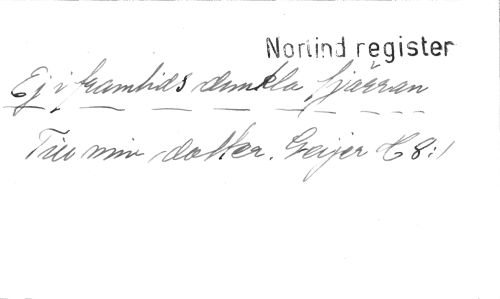 Norlind register
Ej i framtids dunkla fjärran
Till min dotter. Geijer H 8:1